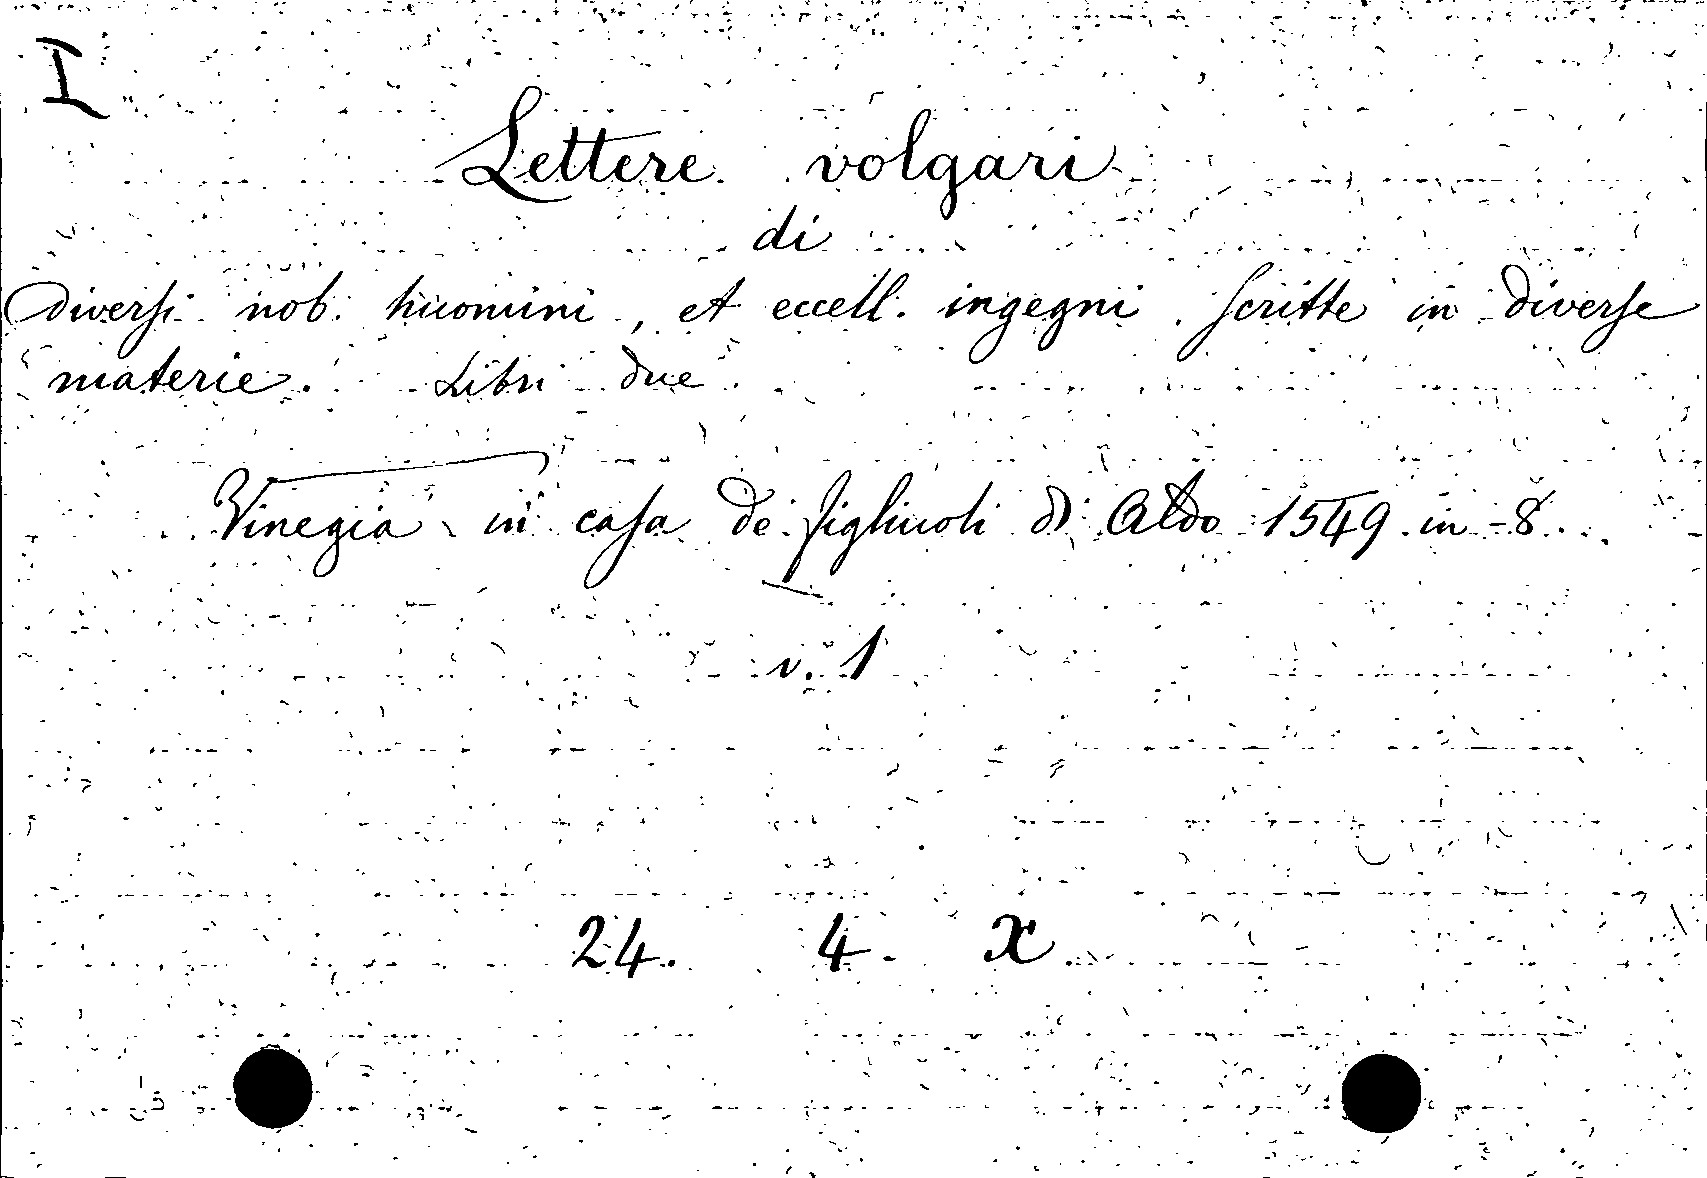 I
Lettere volgari
di
diversi nob. huomini, et eccell. ingegni scritte in diverse
materie. Libri due
Vinegia in casa de figliuoli di Aldo 1549 in 8.
v. 1
24. 4. X